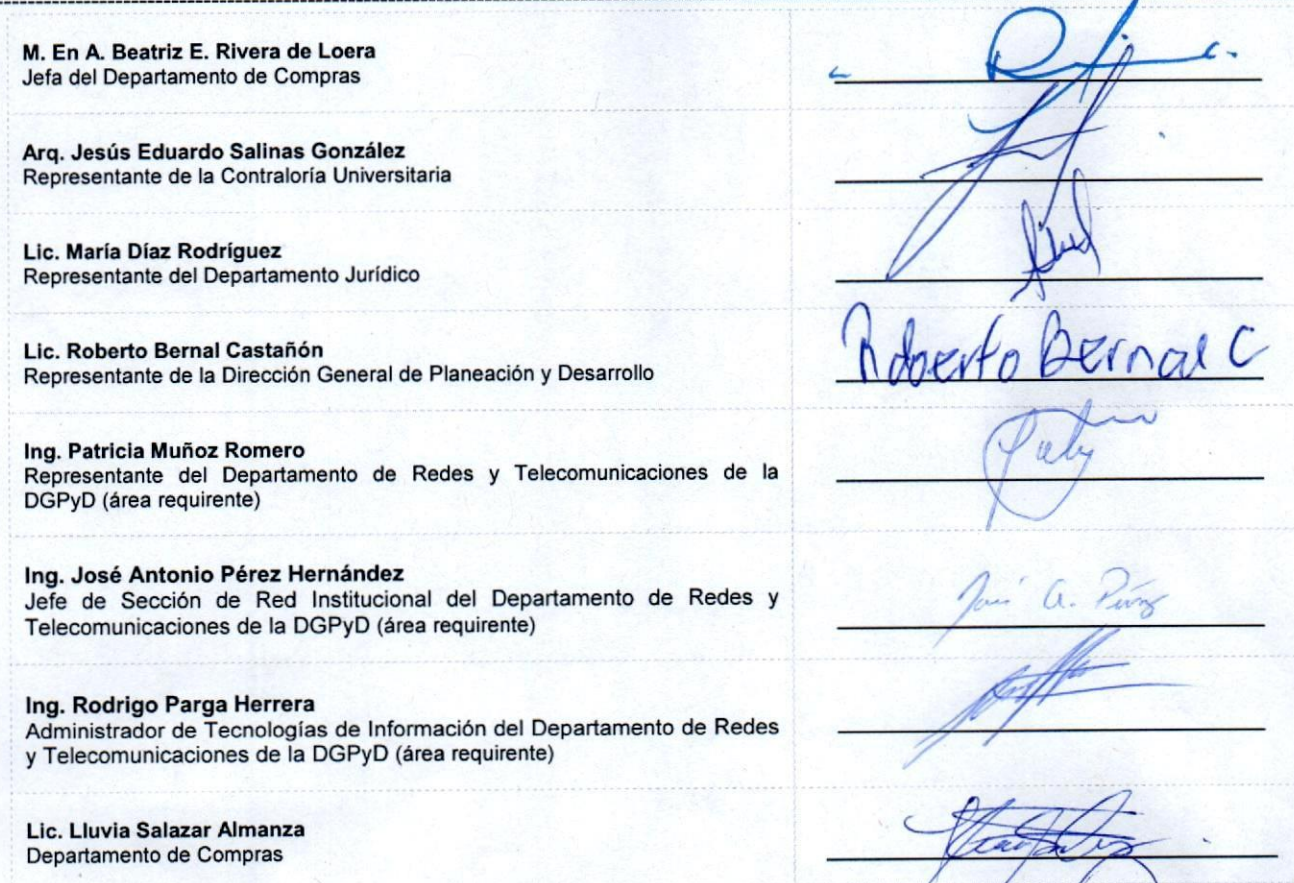 M. En A. Beatriz E. Rivera de Loera
Jefa del Departamento de Compras
Arq. Jesús Eduardo Salinas González
Representante de la Contraloría Universitaria
Lic. María Díaz Rodríguez
Representante del Departamento Jurídico
Lic. Roberto Bernal Castañón
Representante de la Dirección General de Planeación y Desarrollo
Roberto Bernal C
Ing. Patricia Muñoz Romero
Representante del Departamento de Redes y Telecomunicaciones de la
DGPyD (área requirente)
Ing. José Antonio Pérez Hernández
Jefe de Sección de Red Institucional del Departamento de Redes y
Telecomunicaciones de la DGPyD (área requirente)
José A. Pérez
Ing. Rodrigo Parga Herrera
Administrador de Tecnologías de Información del Departamento de Redes
y Telecomunicaciones de la DGPyD (área requirente)
Lic. Lluvia Salazar Almanza
Departamento de Compras